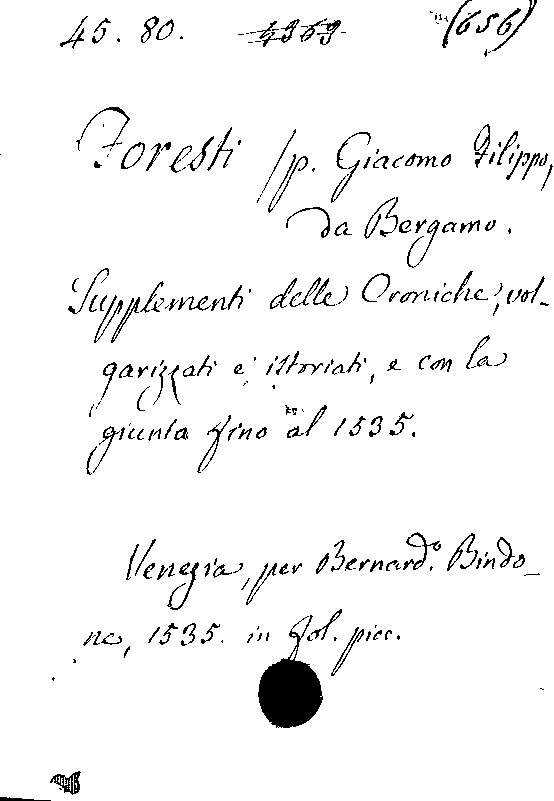 45. 80. 4363 (656)
Foresti /p. Giacomo Filippo,
da Bergamo.
Supplementi delle Croniche, vol-
garizzati e istoriati, e con la
giunta fino al 1535.
Venezia, per Bernard.º Bindo-
ne, 1535. in fol. picc.